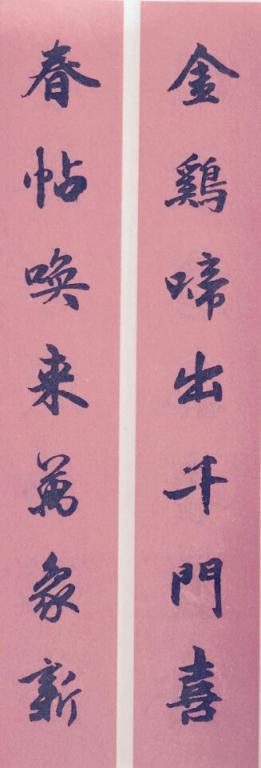 金鷄啼出千門喜
春帖唤来萬象新